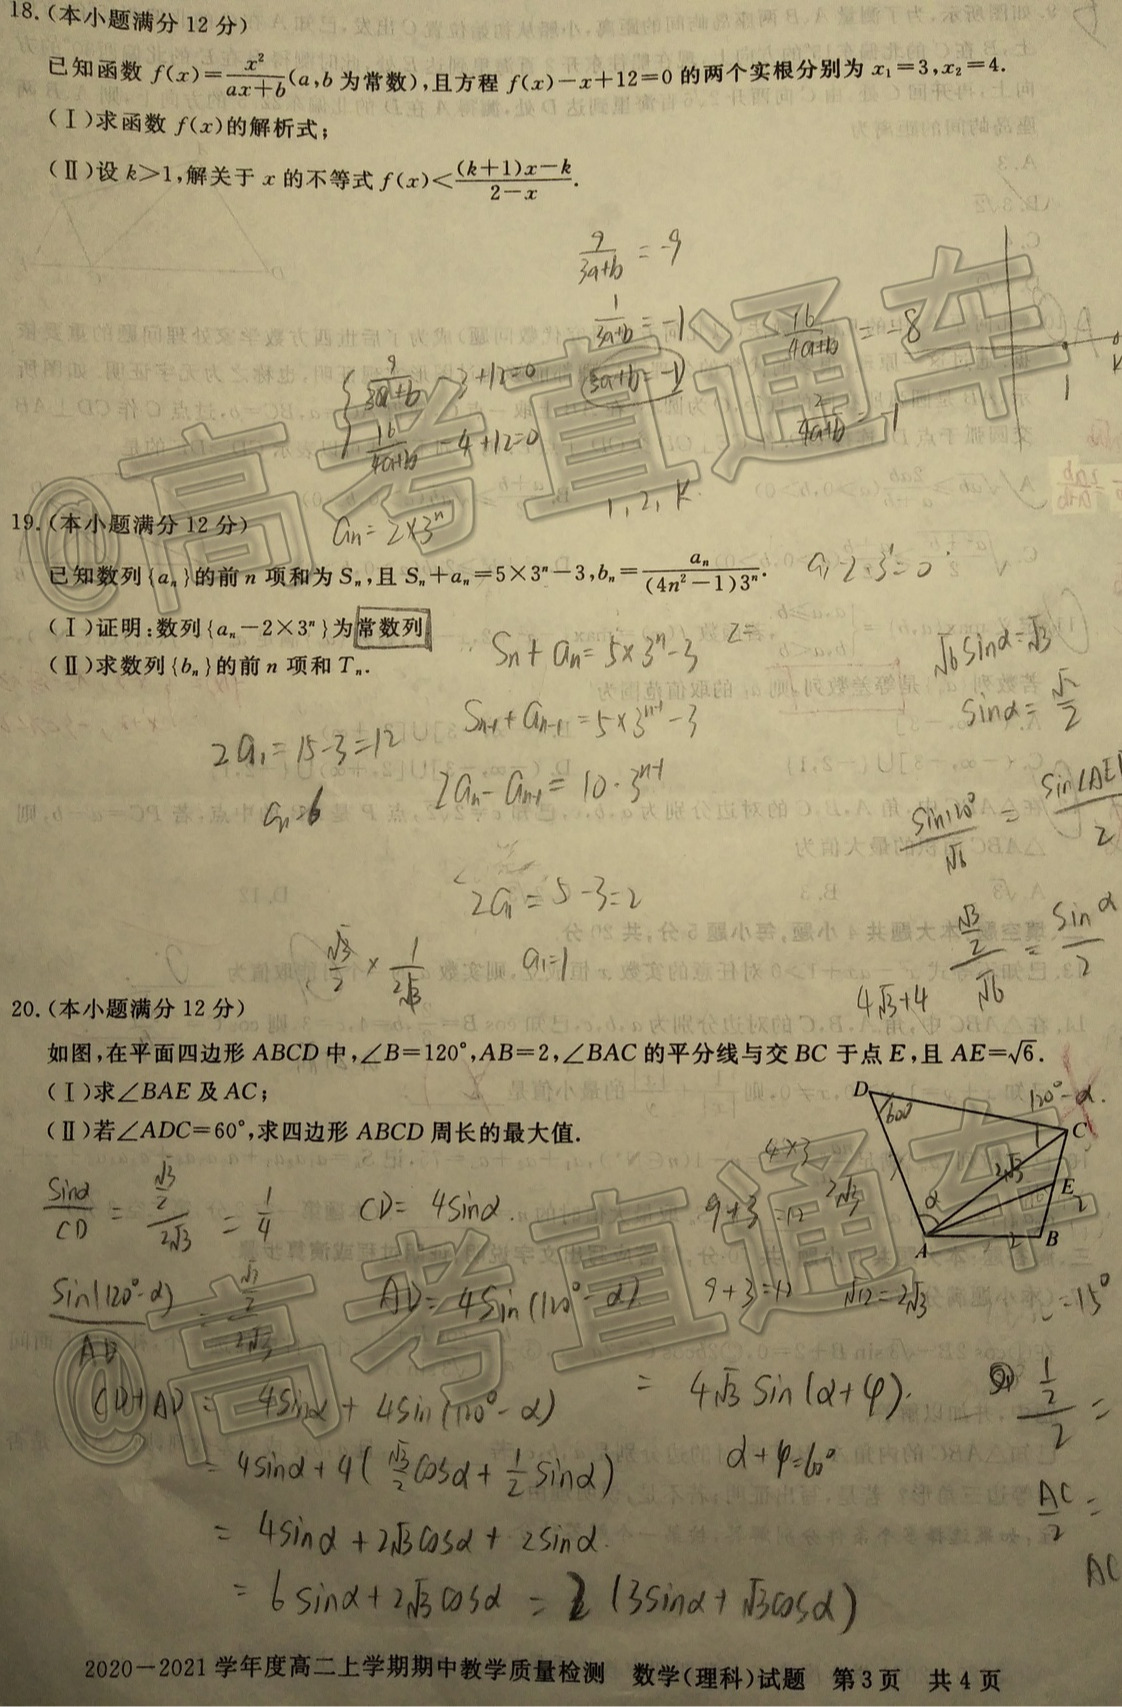 18.(本小题满分12分)
已知函数 f(x)=x²/(ax+b)(a,b为常数),且方程 f(x)-x+12=0的两个实根分别为 x₁=3,x₂=4.
(Ⅰ)求函数 f(x)的解析式;
(Ⅱ)设 k>1,解关于 x 的不等式 f(x)<((k+1)x-k)/(2-x).
9/(3a+b)=-9
1/(3a+b)=-1
16/(4a+b)=-8
9/(3a+b)-3+12=0
(3a+b=-1)
2/(4a+b)=-1
16/(4a+b)-4+12=0
1,2,k.
@高考直通车
19.(本小题满分12分)
aₙ=2×3ⁿ
已知数列{aₙ}的前 n 项和为 Sₙ,且 Sₙ+aₙ=5×3ⁿ-3,bₙ=aₙ/((4n²-1)3ⁿ).
(Ⅰ)证明:数列{aₙ-2×3ⁿ}为常数列
(Ⅱ)求数列{bₙ}的前 n 项和 Tₙ.
Sₙ+aₙ=5×3ⁿ-3
√6sinα=√3
Sₙ₋₁+aₙ₋₁=5×3ⁿ⁻¹-3
sinα=√2/2
2a₁=15-3=12
2aₙ-aₙ₋₁=10·3ⁿ⁻¹
2a₁=5-3=2
a₁=1
√3/2×1/(2√3)
4√3+4
20.(本小题满分12分)
如图,在平面四边形 ABCD 中,∠B=120°,AB=2,∠BAC 的平分线与交 BC 于点 E,且 AE=√6.
(Ⅰ)求∠BAE 及 AC;
(Ⅱ)若∠ADC=60°,求四边形 ABCD 周长的最大值.
D
60°
120°-α.
C
2√3
E
2
α
A
2
B
sinα/CD=(√3/2)/(2√3)=1/4
CD=4sinα.
9+3=12
2√3
sin(120°-α)/AD=(√3/2)/(2√3)
AD=4sin(120°-α)
9+3=12
√12=2√3
=15°
@高考直通车
CD+AD=4sinα+4sin(120°-α)
=4√3sin(α+φ).
=4sinα+4(√3/2cosα+1/2sinα)
α+φ=60°
=4sinα+2√3cosα+2sinα.
AC/2=
AC
=6sinα+2√3cosα=2(3sinα+√3cosα)
2020-2021学年度高二上学期期中教学质量检测 数学(理科)试题 第3页 共4页